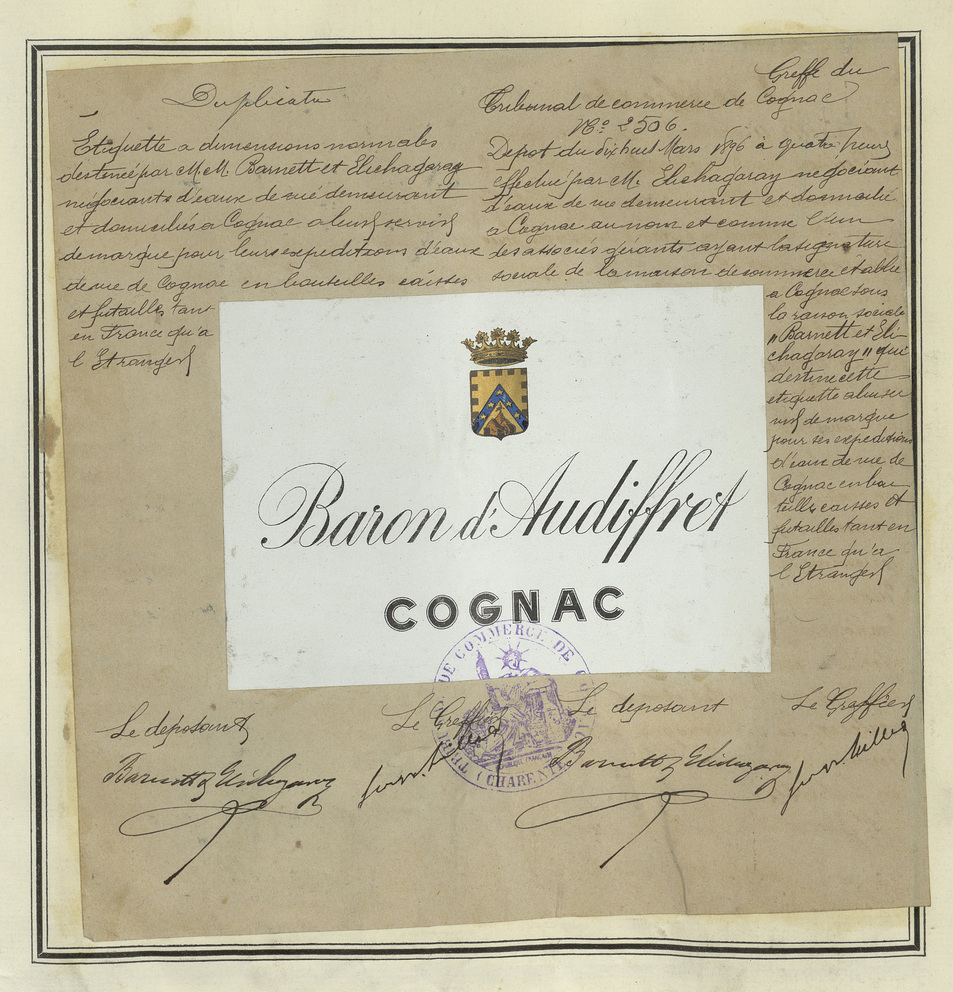 Duplicata
Etiquette a dimensions normales
destinée par M.M. Barnett et Elichagaray
négociants d'eaux de vie demeurant
et domiciliés a Cognac a leur servir
de marque pour leurs expeditions d'eaux
de vie de Cognac en bouteilles caisses
et futailles tant
en France qu'a
l'Etranger
Greffe du
Tribunal de commerce de Cognac
No 2506.
Depot du dix huit Mars 1896 à quatre heures
effectué par M. Elichagaray négociant
d'eaux de vie demeurant et domicilié
a Cognac au nom et comme l'un
des associés gérants ayant la signature
sociale de la maison de commerce établie
a Cognac sous
la raison sociale
"Barnett et Eli-
chagaray" qui
destine cette
etiquette a lui ser
vir de marque
pour ses expeditions
d'eaux de vie de
Cognac en bou
teilles caisses et
futailles tant en
France qu'a
l'Etranger
Baron d'Audiffret
COGNAC
DE COMMERCE DE
(CHARENTE)
Le deposant
Le Greffier
Le deposant
Le Greffier
Barnett & Elichagaray
Barnett & Elichagaray